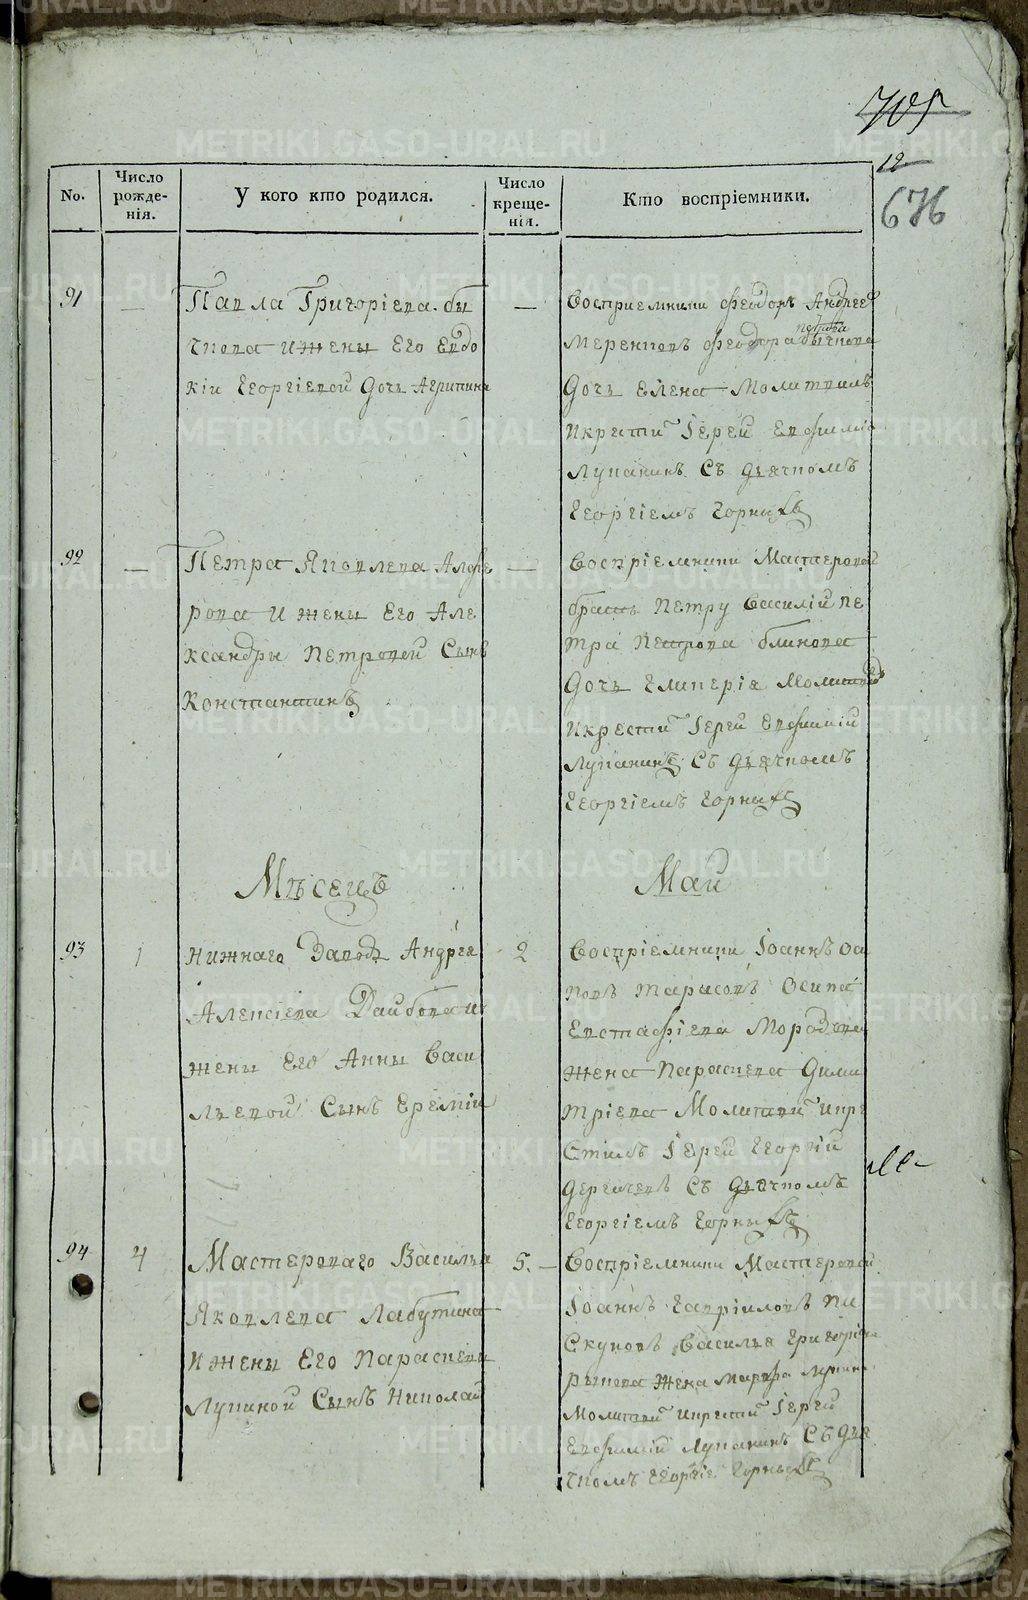 705
12
676
No.
Число рожде-нія.
У кого кто родился.
Число креще-нія.
Кто воспріемники.
91
—
Павла Григоріева бы
чкова и жены Его Евдо
кіи Георгіевой Дочь Агрипина
—
Воспріемники Феодоръ Андрее
Меренковъ Феодора Бычкова
Дочь Елена Молитвилъ
икрести Іерей Евфимій
Лупанинъ Съ дьячкомъ
Георгіемъ Горныхъ
92
—
Петра Яковлева Алфе
рова и жены Его Але
ксандры Петровой Сынъ
Константинъ
—
Воспріемники Мастеровой
братъ Петру Василій Пе
тра Петрова блинова
Дочь Гликерія Молитвилъ
икрести Іерей Евфимій
Лупанинъ Съ дьячкомъ
Георгіемъ Горныхъ
Мѣсецъ
Май
93
1
Нижнаго Завода Андрея
Алексіева Дайбова и
жены Его Анны Васи
льевой Сынъ Еремій
2
Воспріемники Іоаннъ Оси
повъ Тарасовъ Осипа
Евстафіева
жена Параскева Дими
тріева Молитви икре
стилъ Іерей Георгій
Съ дьячкомъ
Георгіемъ Горныхъ
94
4
Мастероваго Василья
Яковлева Лабутина
и жены Его Параскевы
Лукиной Сынъ Николай
5. —
Воспріемники Мастеровой
Іоаннъ Гавріиловъ Пи
скуновъ Василья Григоріева
жена Марфа
Молитви икрести Іерей
Евфимій Лупанинъ Съ дья
чкомъ Георгіе Горныхъ
METRIKI.GASO-URAL.RU